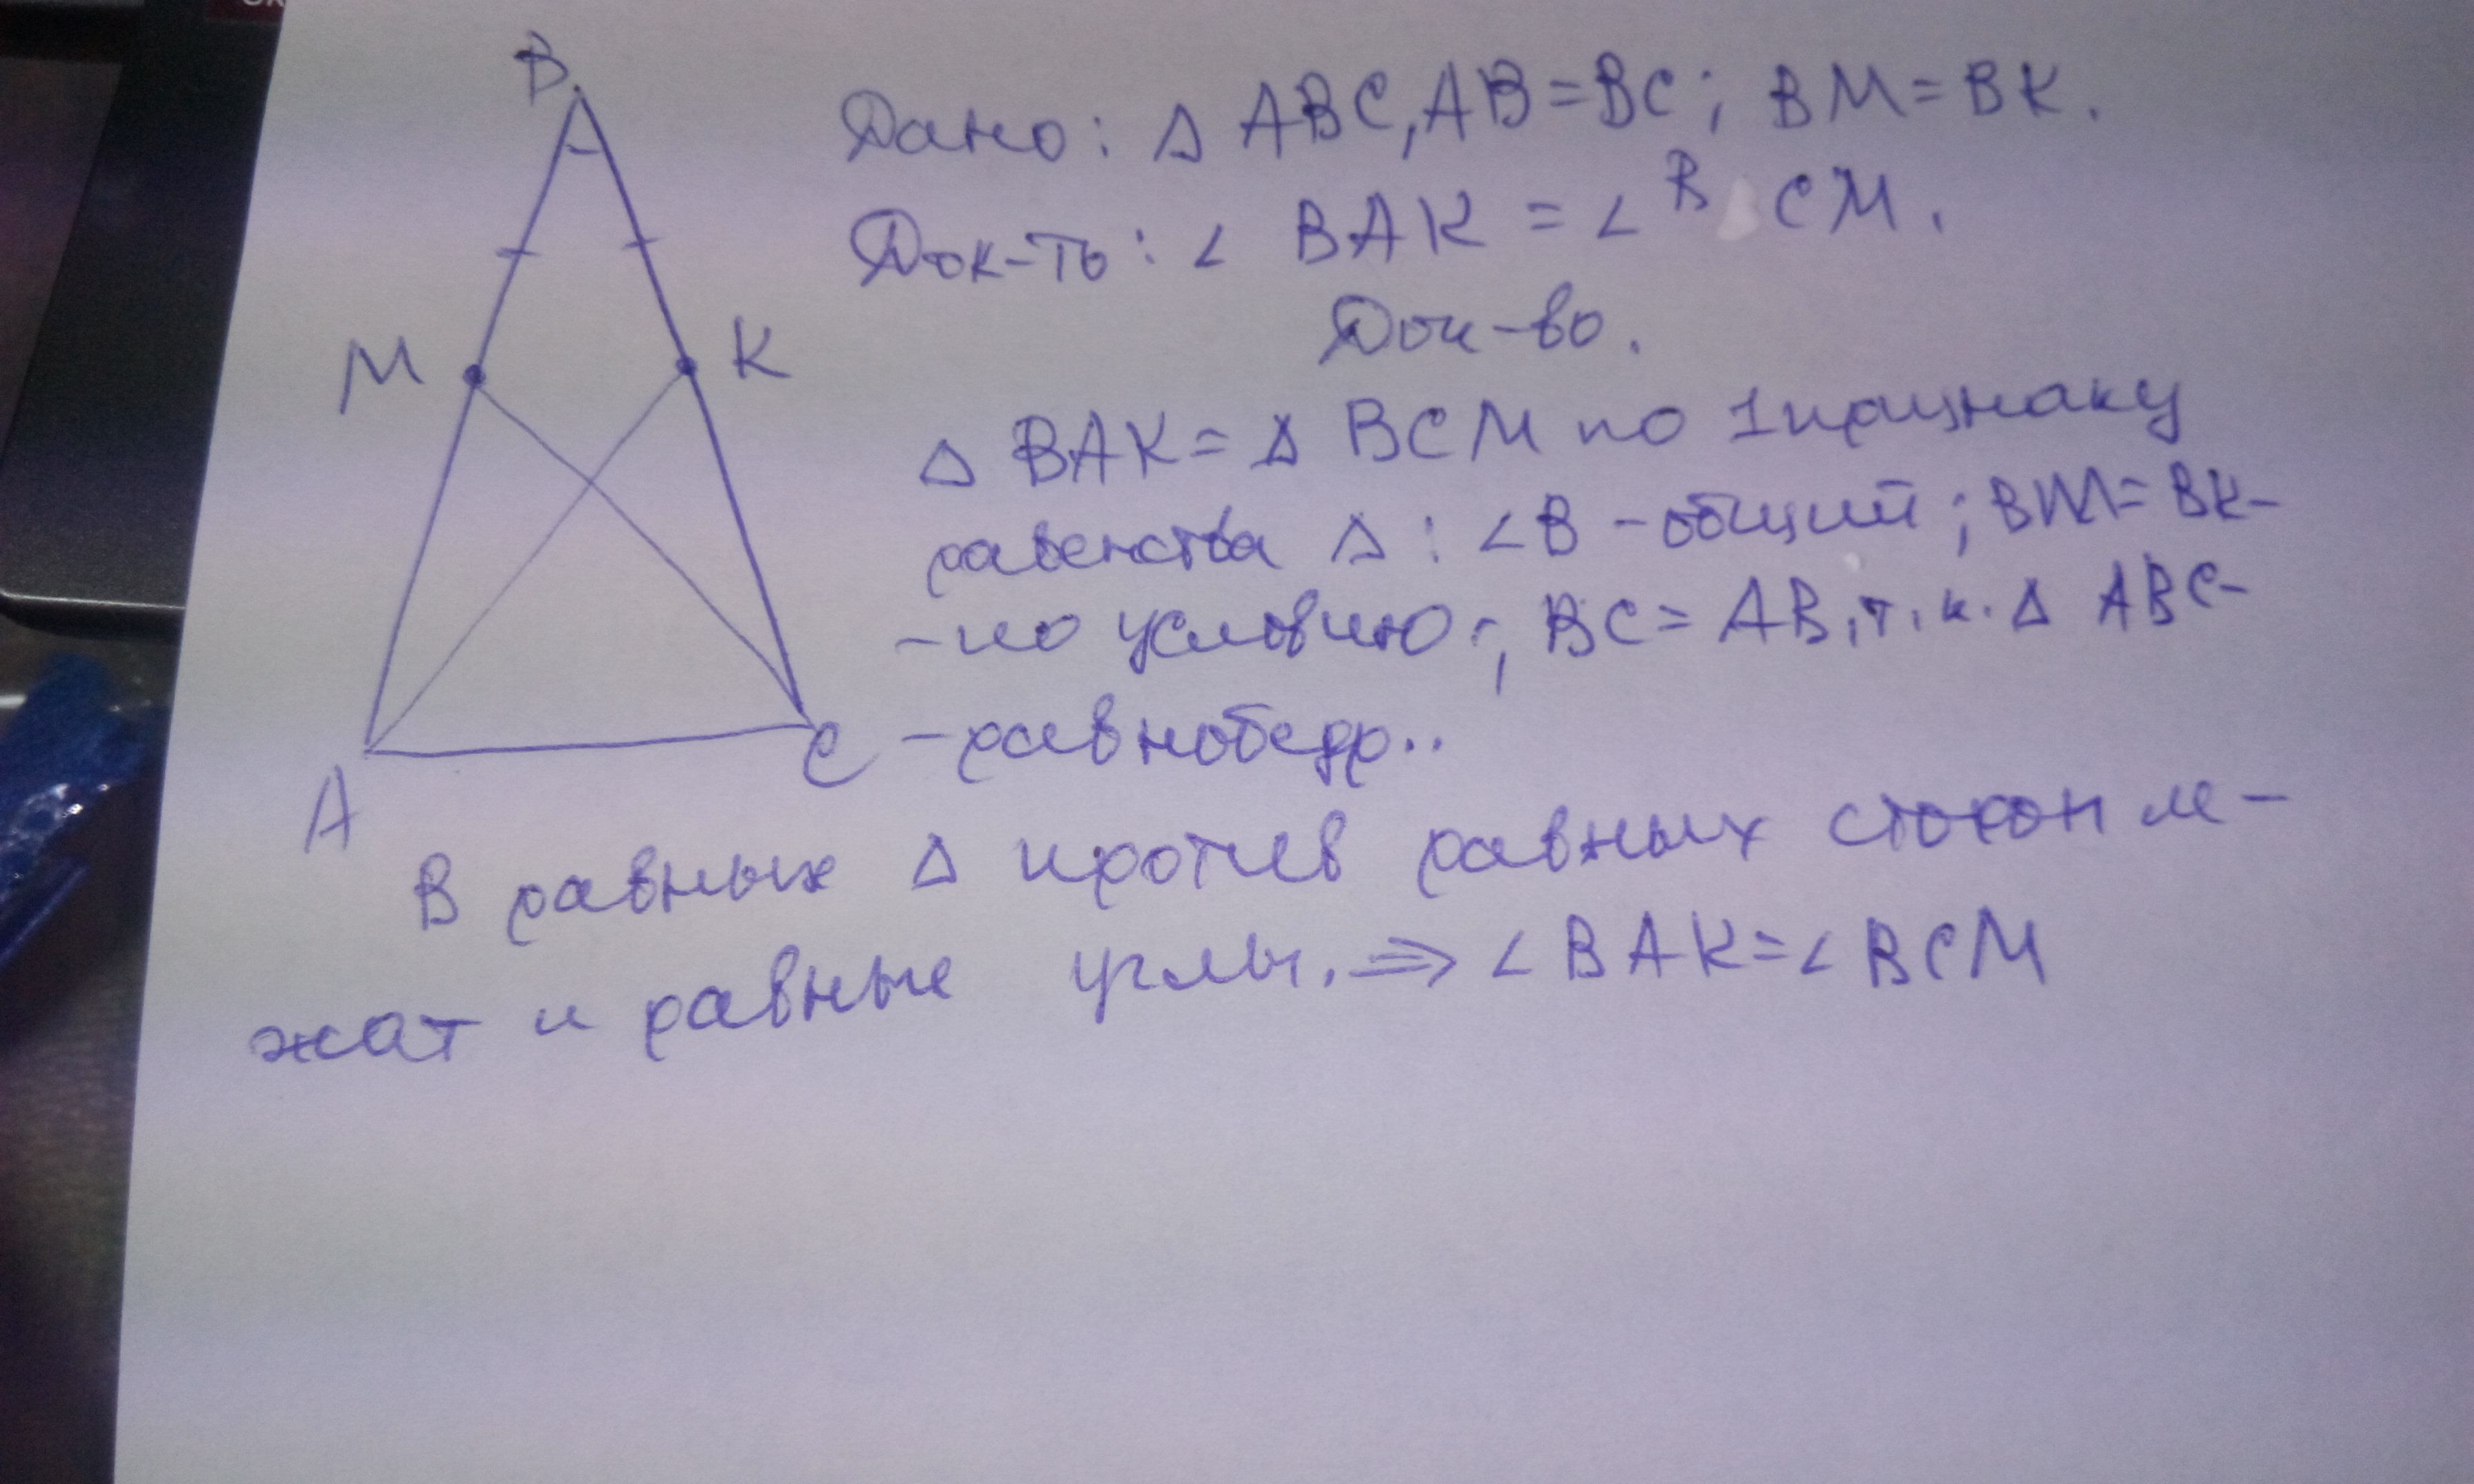 B
Дано: Δ ABC, AB=BC; BM=BK.
Док-ть: ∠ BAK = ∠ B CM.
Док-во.
M K
Δ BAK = Δ BCM по 1 признаку
равенства Δ: ∠B - общий; BM=BK-
-по условию; BC=AB, т.к. Δ ABC-
A C
-равнобедр..
В равных Δ против равных сторон ле-
жат и равные углы. ⇒ ∠ BAK=∠ BCM